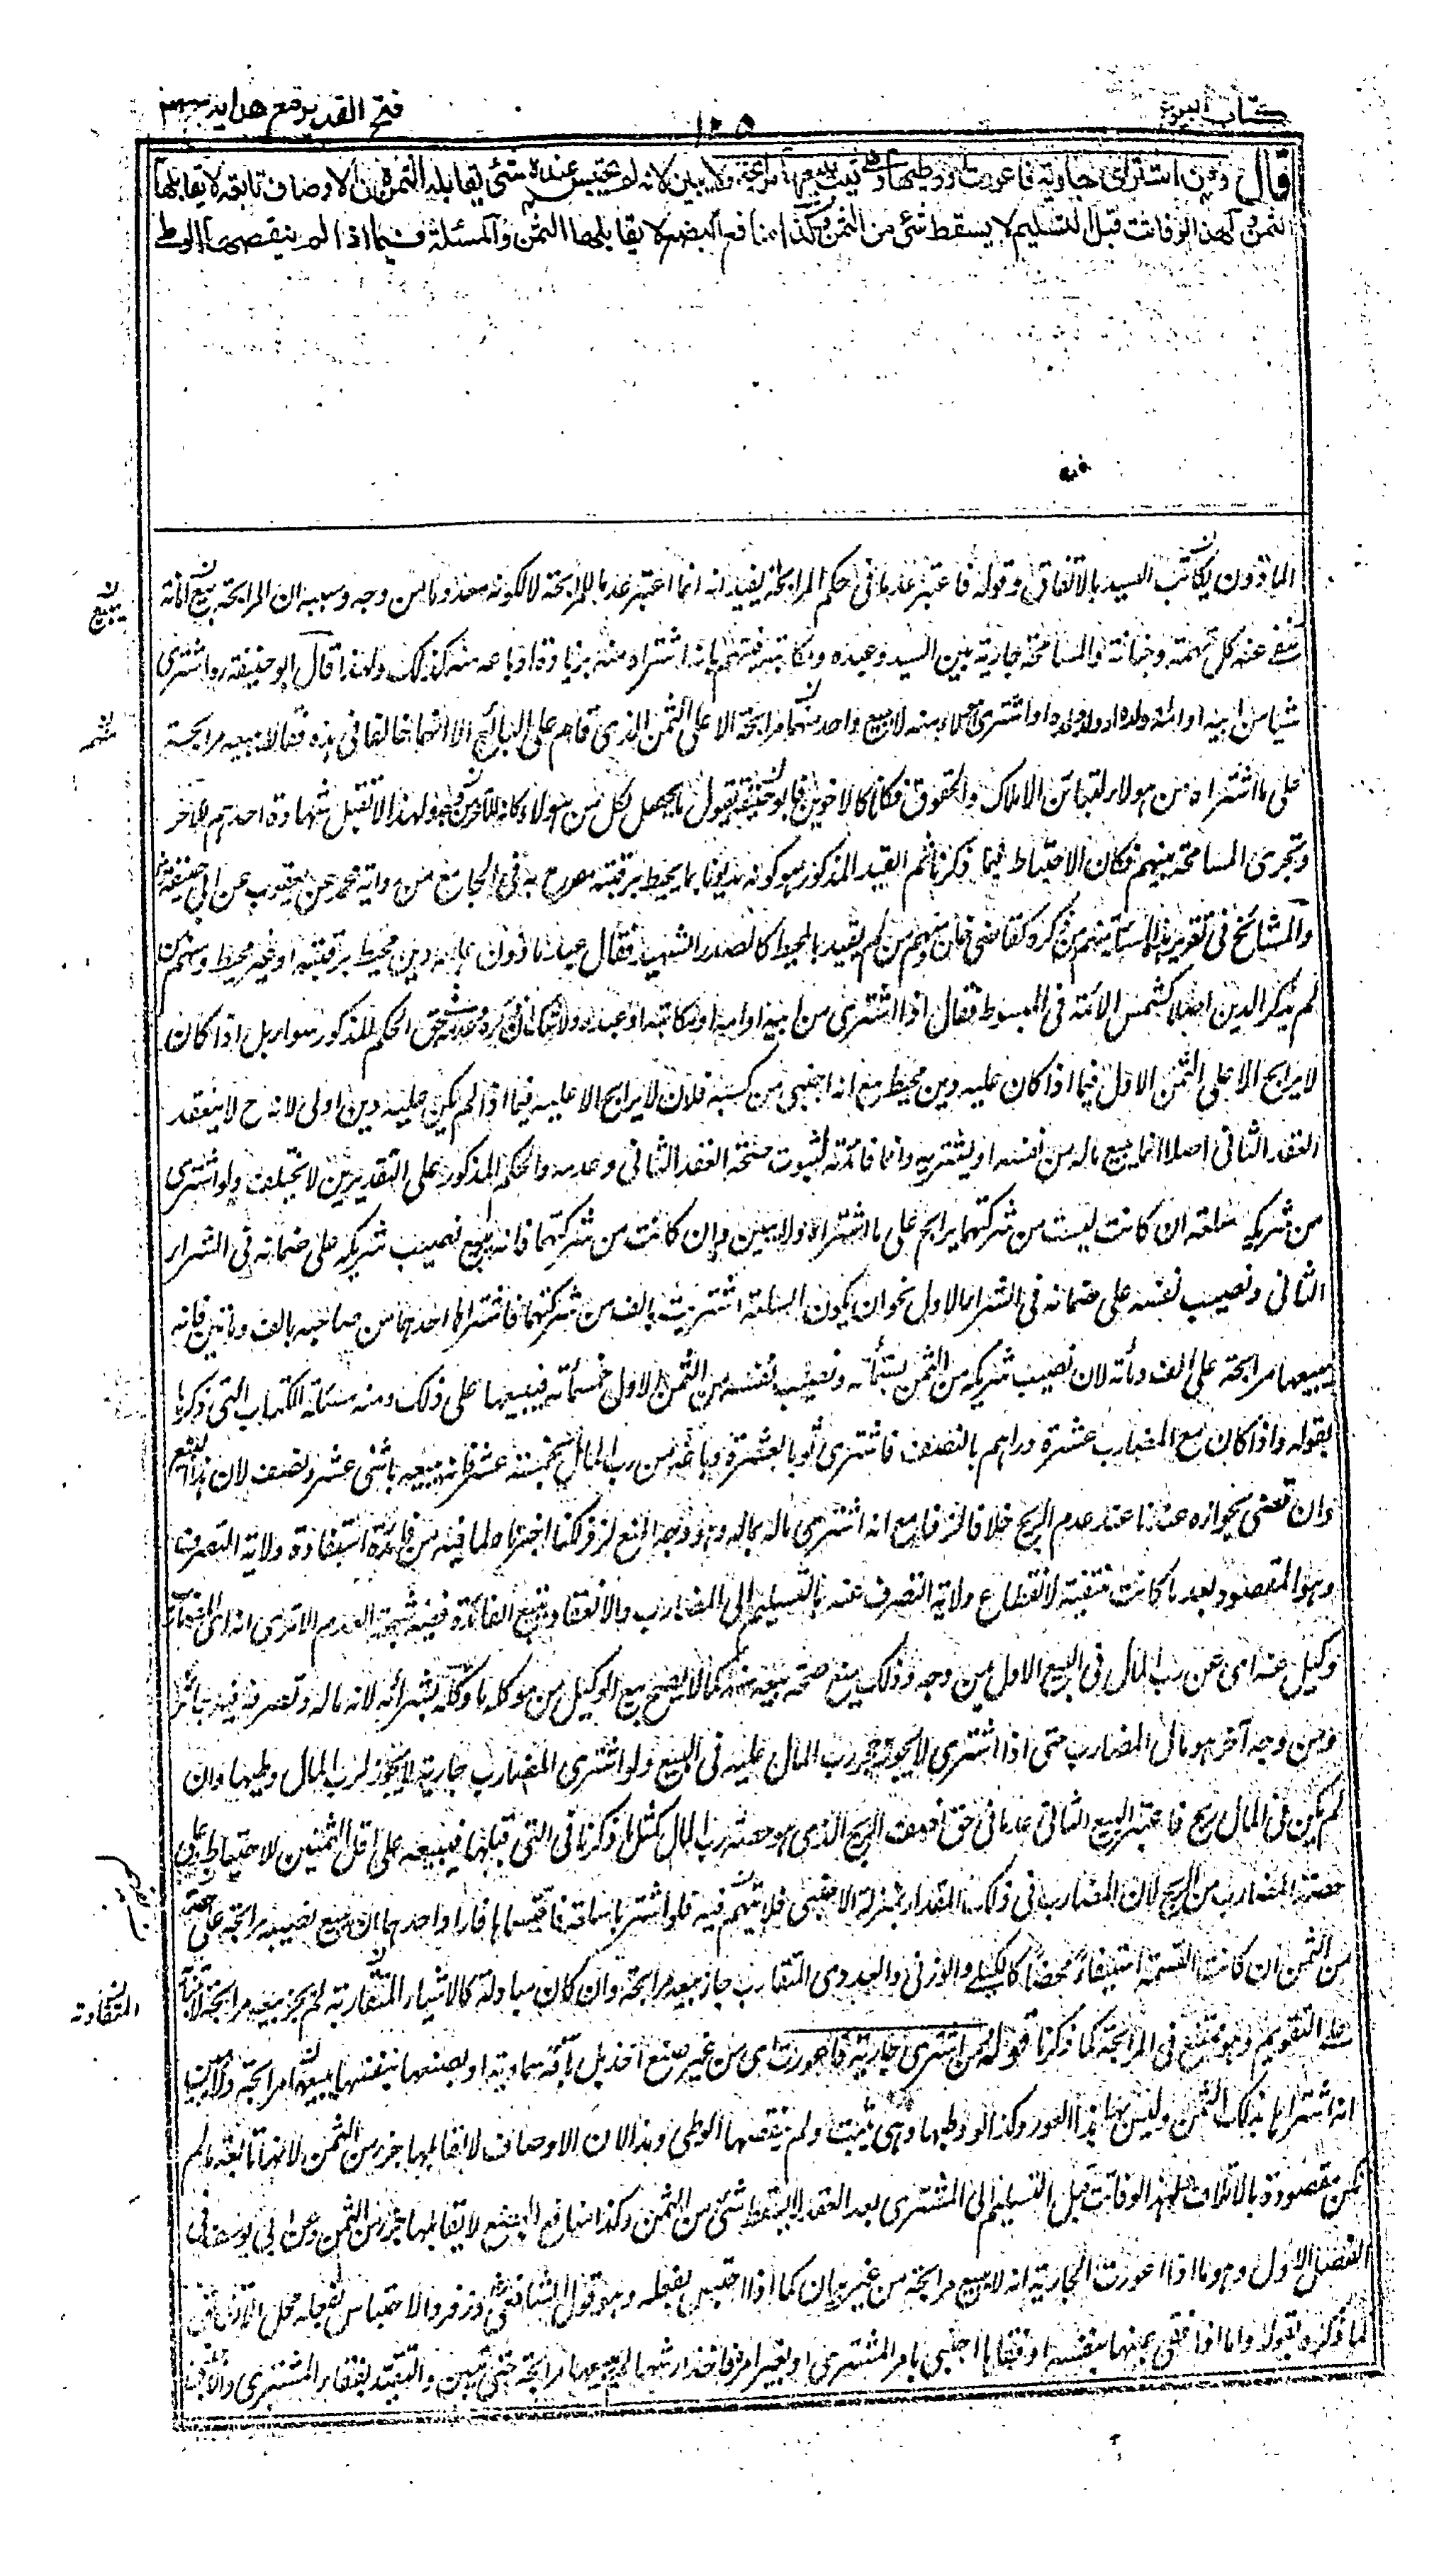 كتاب البيوع
١٢٥
فتح القدير مع هدايه
قال ومن اشترى جارية فاعورت او وطيها وهي ثيب يبيعها مرابحة ولا يبين لانه لم يحتبس عنده شئ يقابله الثمن لان الاوصاف تابعة لا يقابلها
الثمن ولهذا لو فاتت قبل التسليم لا يسقط شئ من الثمن وكذا منافع البضع لا يقابلها الثمن والمسئلة فيما اذا لم ينقصها الوطي
الماذون يكاتب السيد بالاتفاق وقوله فاعتبر عدما فى حكم المرابحة يفيد انه انما اعتبر عدما للمرابحة لا لكونه معدوما من وجه وسببه ان المرابحة بيع امانة
عنه كل تهمة وخيانة والمسامحة جارية بين السيد وعبده ومكاتبه فيتهم بانه اشتراه منه بزيادة او باعه منه كذلك ولهذا قال ابو حنيفة رح لو اشترى
شيا من ابيه او امه ولده او اشترى منه لا يبيع واحد منهما مرابحة الا على الثمن الذى قام على البائع الا انهما خالفا فى هذه فقالا يبيعه مرابحة
على ما اشتراه من هولاء لتباين الاملاك والحقوق فكانا كالاخوين وابو حنيفة يقول ما يحصل لكل من هولاء كانه للآخر ولهذا لا تقبل شهادة احدهم للآخر
وتجرى المسامحة بينهم فكان الاحتياط فيما ذكرنا ثم القيد المذكور هو كونه مديونا بما يحيط برقبته مصرح به فى الجامع من رواية محمد عن يعقوب عن ابى حنيفة
والمشائخ فى تقرير هذه المسئلة منهم من ذكره كقاضى خان ومنهم من لم يقيد بالمحيط كالصدر الشهيد فقال عبد ماذون عليه دين محيط برقبته او غير محيط ومنهم من
لم يذكر الدين اصلا كشمس الائمة فى المبسوط فقال اذا اشترى من ابيه او امه او مكاتبه او عبده ولا شك ان ذكره وعدمه فى حق الحكم المذكور سواء بل اذا كان
لا يرابح الا على الثمن الاول فيما اذا كان عليه دين محيط مع انه اجنبى من كسبه فلان لا يرابح الا عليه فيما اذا لم يكن عليه دين اولى لانه ح لا ينعقد
العقد الثانى اصلا انما يبيع ماله من نفسه او يشتريه وانما فائدته لثبوت صحة العقد الثانى وعدمه والحكم المذكور على التقديرين لا يختلف ولو اشترى
من شريكه سلعة ان كانت ليست من شركتهما يرابح على ما اشتراه ولا يبين وان كانت من شركتهما فانه يبيع نصيب شريكه على ضمانه فى الشراء
الثانى ونصيب نفسه على ضمانه فى الشراء الاول نحو ان يكون السلعة اشتريت بالف من شركتهما فاشتراها احدهما من صاحبه بالف ومائتين فانه
يبيعها مرابحة على الف ومأة لان نصيب شريكه من الثمن ستمأة ونصيب نفسه من الثمن الاول خمسمأة فيبيعها على ذلك ومنه مسئلة الكتاب التى ذكرها
بقوله واذا كان مع المضارب عشرة دراهم بالنصف فاشترى ثوبا بعشرة وباعه من رب المال بخمسة عشر فانه يبيعه باثنى عشر ونصف لان هذا البيع
وان قضى بجوازه عندنا عند عدم الربح خلافا لزفر مع انه اشترى ماله بماله وهو وجه المنع لزفر لكنا اجزناه لما فيه من فائدة استفادة ولاية التصرف
وهو المقصود بعد ما كانت منتفية لانقطاع ولاية التصرف عنه بالتسليم الى المضارب والانعقاد يتبع الفائدة ففيه شبهة العدم الا ترى انه اى المضارب
وكيل عنه اى عن رب المال فى البيع الاول من وجه وذلك يمنع صحة بيعه منه كما لا يصح بيع الوكيل من موكله ما وكله بشرائه لانه ماله وتصرفه فيه باثر
ومن وجه آخر هو مال المضارب حتى اذا اشترى لا يجوز حجر رب المال عليه فى البيع ولو اشترى المضارب جارية لا يجوز لرب المال وطيها وان
لم يكن فى المال ربح فاعتبر البيع الثانى عدما فى حق نصف الربح الذى هو حصة رب المال كمثل ما ذكرنا فى التى قبلها فيبيعه على اقل الثمنين للاحتياط على
حصة المضارب من الربح لان المضارب فى ذلك المقدار بمنزلة الاجنبى فلا يتهم فيه فلو اشتريا سلعة فاقتسماها فاراد احدهما ان يبيع نصيبه مرابحة على حصته
من الثمن ان كانت القسمة استيفاء محضا كالكيلى والوزنى والعددى المتقارب جاز بيعه مرابحة وان كان مبادلة كالاشياء المتقاربة لم يجز بيعه مرابحة
على التقويم وهو ممتنع فى المرابحة كما ذكرنا قوله ومن اشترى جارية فاعورت اى من غير صنع احد بل بآفة سماوية او بصنعها بنفسها يبيعها مرابحة ولا يبين
انه اشتراها بذلك الثمن وليس بها هذا العور وكذا لو وطيها وهى ثيب ولم ينقصها الوطى وهذا لان الاوصاف لا يقابلها جزء من الثمن لانها تابعة ما لم
تكن مقصودة بالاتلاف ولهذا لو فاتت قبل التسليم الى المشترى بعد العقد لا يسقط شئ من الثمن وكذا منافع البضع لا يقابلها جزء من الثمن وعن ابى يوسف فى
الفصل الاول وهو ما اذا اعورت الجارية انه لا يبيع مرابحة من غير بيان كما اذا احتبس بفعله وهو قول الشافعى وزفر والاحتباس بفعله محل
لما ذكره بقوله واما اذا فقى عينها بنفسه او فقاها اجنبى بامر المشترى او بغير امره فاخذ ارشها لم يبعها مرابحة حتى يبين والتقييد بفقاء المشترى
يبيع
متهم
المتفاوتة